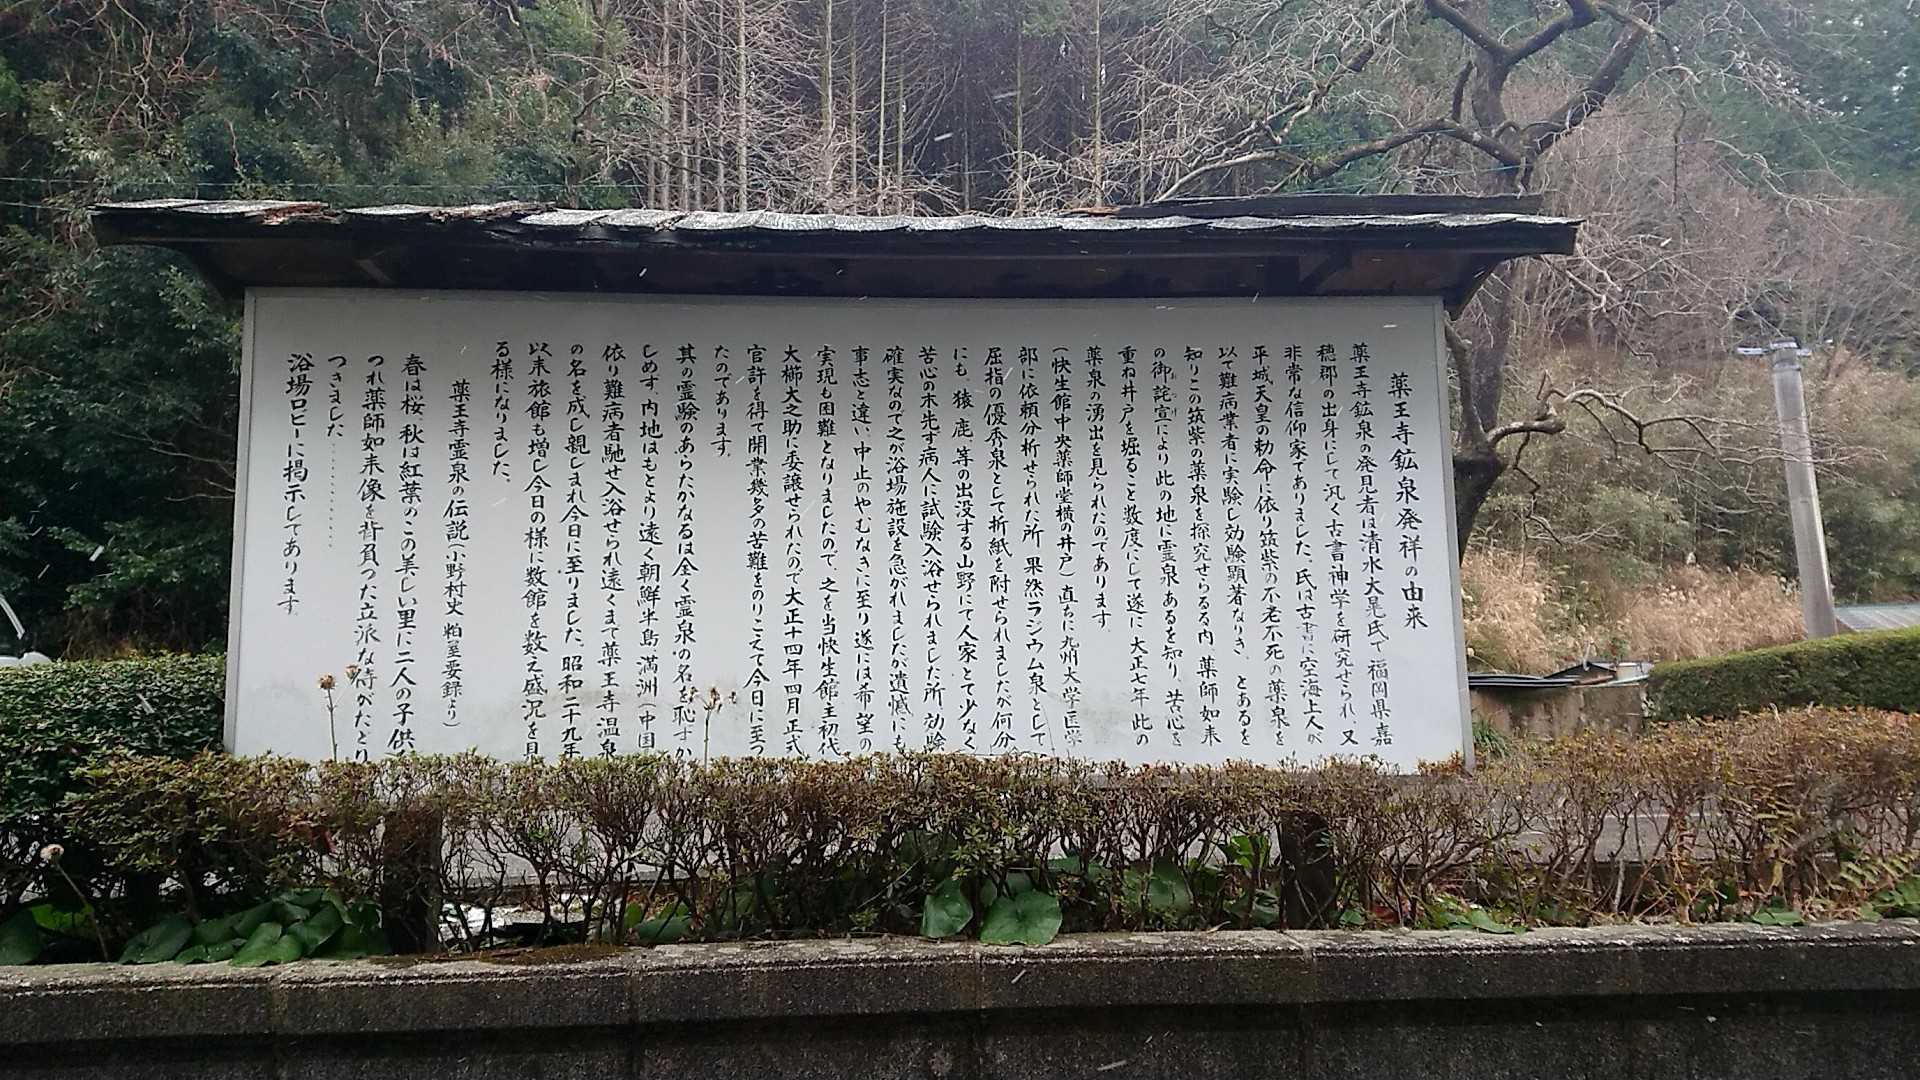 薬王寺鉱泉発祥の由来
薬王寺鉱泉の発見者は清水大晃氏で 福岡県嘉
穂郡の出身にして汎く古書神学を研究せられ、又
非常な信仰家でありました、氏は古書に空海上人が
平城天皇の勅命に依り筑紫の不老不死の薬泉を
以て難病業者に実験し効験顕著なりき、とあるを
知りこの筑紫の薬泉を探究せらるる内、薬師如来
の御託宣により此の地に霊泉あるを知り、苦心を
重ね井戸を堀ること数度にして遂に大正七年 此の
薬泉の湧出を見られたのであります
(快生館中央薬師堂横の井戸)直ちに九州大学医学
部に依頼分析せられた所 果然ラジウム泉として
屈指の優秀泉として折紙を附せられましだが何分
にも 猿 鹿 等の出没する山野にて人家とて少なく
苦心の末先ず病人に試験入浴せられました所 効験
確実なので之が浴場施設を急がれましたが遺憾にも
事志と違い、中止のやむなきに至り遂には希望の
実現も困難となりましたので、之を当快生館主初代
大櫛大之助に委譲せられたので大正十四年四月正式
官許を得て開業幾多の苦難をのりこえて今日に至っ
たのであります。
其の霊験のあらたかなるは全く霊泉の名を恥ずか
しめす、内地はもとより遠く朝鮮半島 満洲(中国
依り難病者馳せ入浴せられ遠くまで薬王寺温泉
の名を成し親しまれ今日に至りました、昭和二十九年
以来旅館も増し今日の様に数館を数え盛況を見
る様になりました、
薬王寺霊泉の伝説(小野村史 粕屋要録より)
春は桜、秋は紅葉のこの美しい里に二人の子供
つれ薬師如来像を背負った立派な侍がたどり
つきました…………
浴場ロビーに掲示してあります